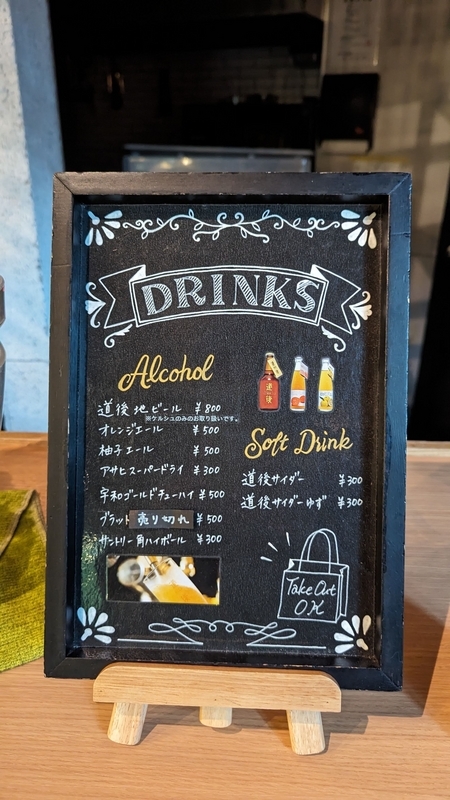 DRINKS
Alcohol
道後地ビール ¥800
※ケルシュのみのお取り扱いです。
オレンジエール ¥500
柚子エール ¥500
アサヒスーパードライ ¥300
宇和ゴールドチューハイ ¥500
ブラッド 売り切れ ¥500
サントリー角ハイボール ¥300
道後
Soft Drink
道後サイダー ¥300
道後サイダーゆず ¥300
Take Out
OK